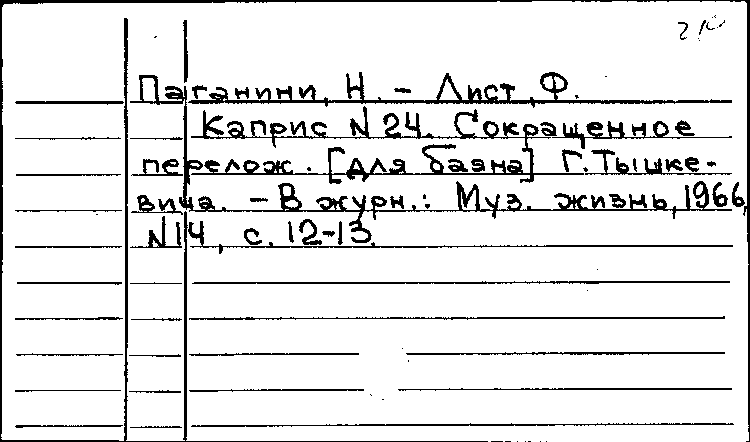 Паганини, Н. – Лист, Ф.
Каприс N 24. Сокращенное
перелож. [для баяна] Г. Тышке-
вича. – В журн.: Муз. жизнь, 1966,
N14, с. 12-13.